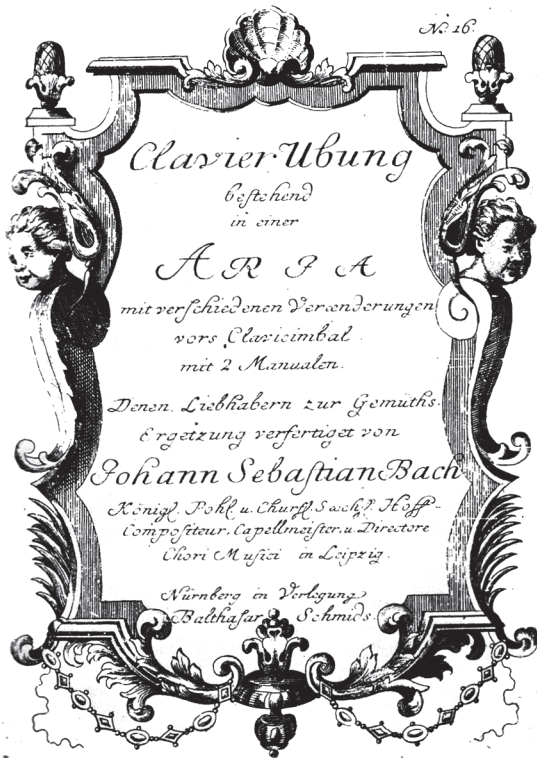 N: 16.
Clavier Ubung
bestehend
in einer
ARIA
mit verschiedenen Verænderungen
vors Clavicimbal
mit 2 Manualen.
Denen Liebhabern zur Gemüths-
Ergetzung verfertiget von
Johann Sebastian Bach
Königl. Pohl. u. Churfl. Sæchs. Hoff-
Compositeur, Capellmeister, u. Directore
Chori Musici in Leipzig.
Nürnberg in Verlegung
Balthasar Schmids.